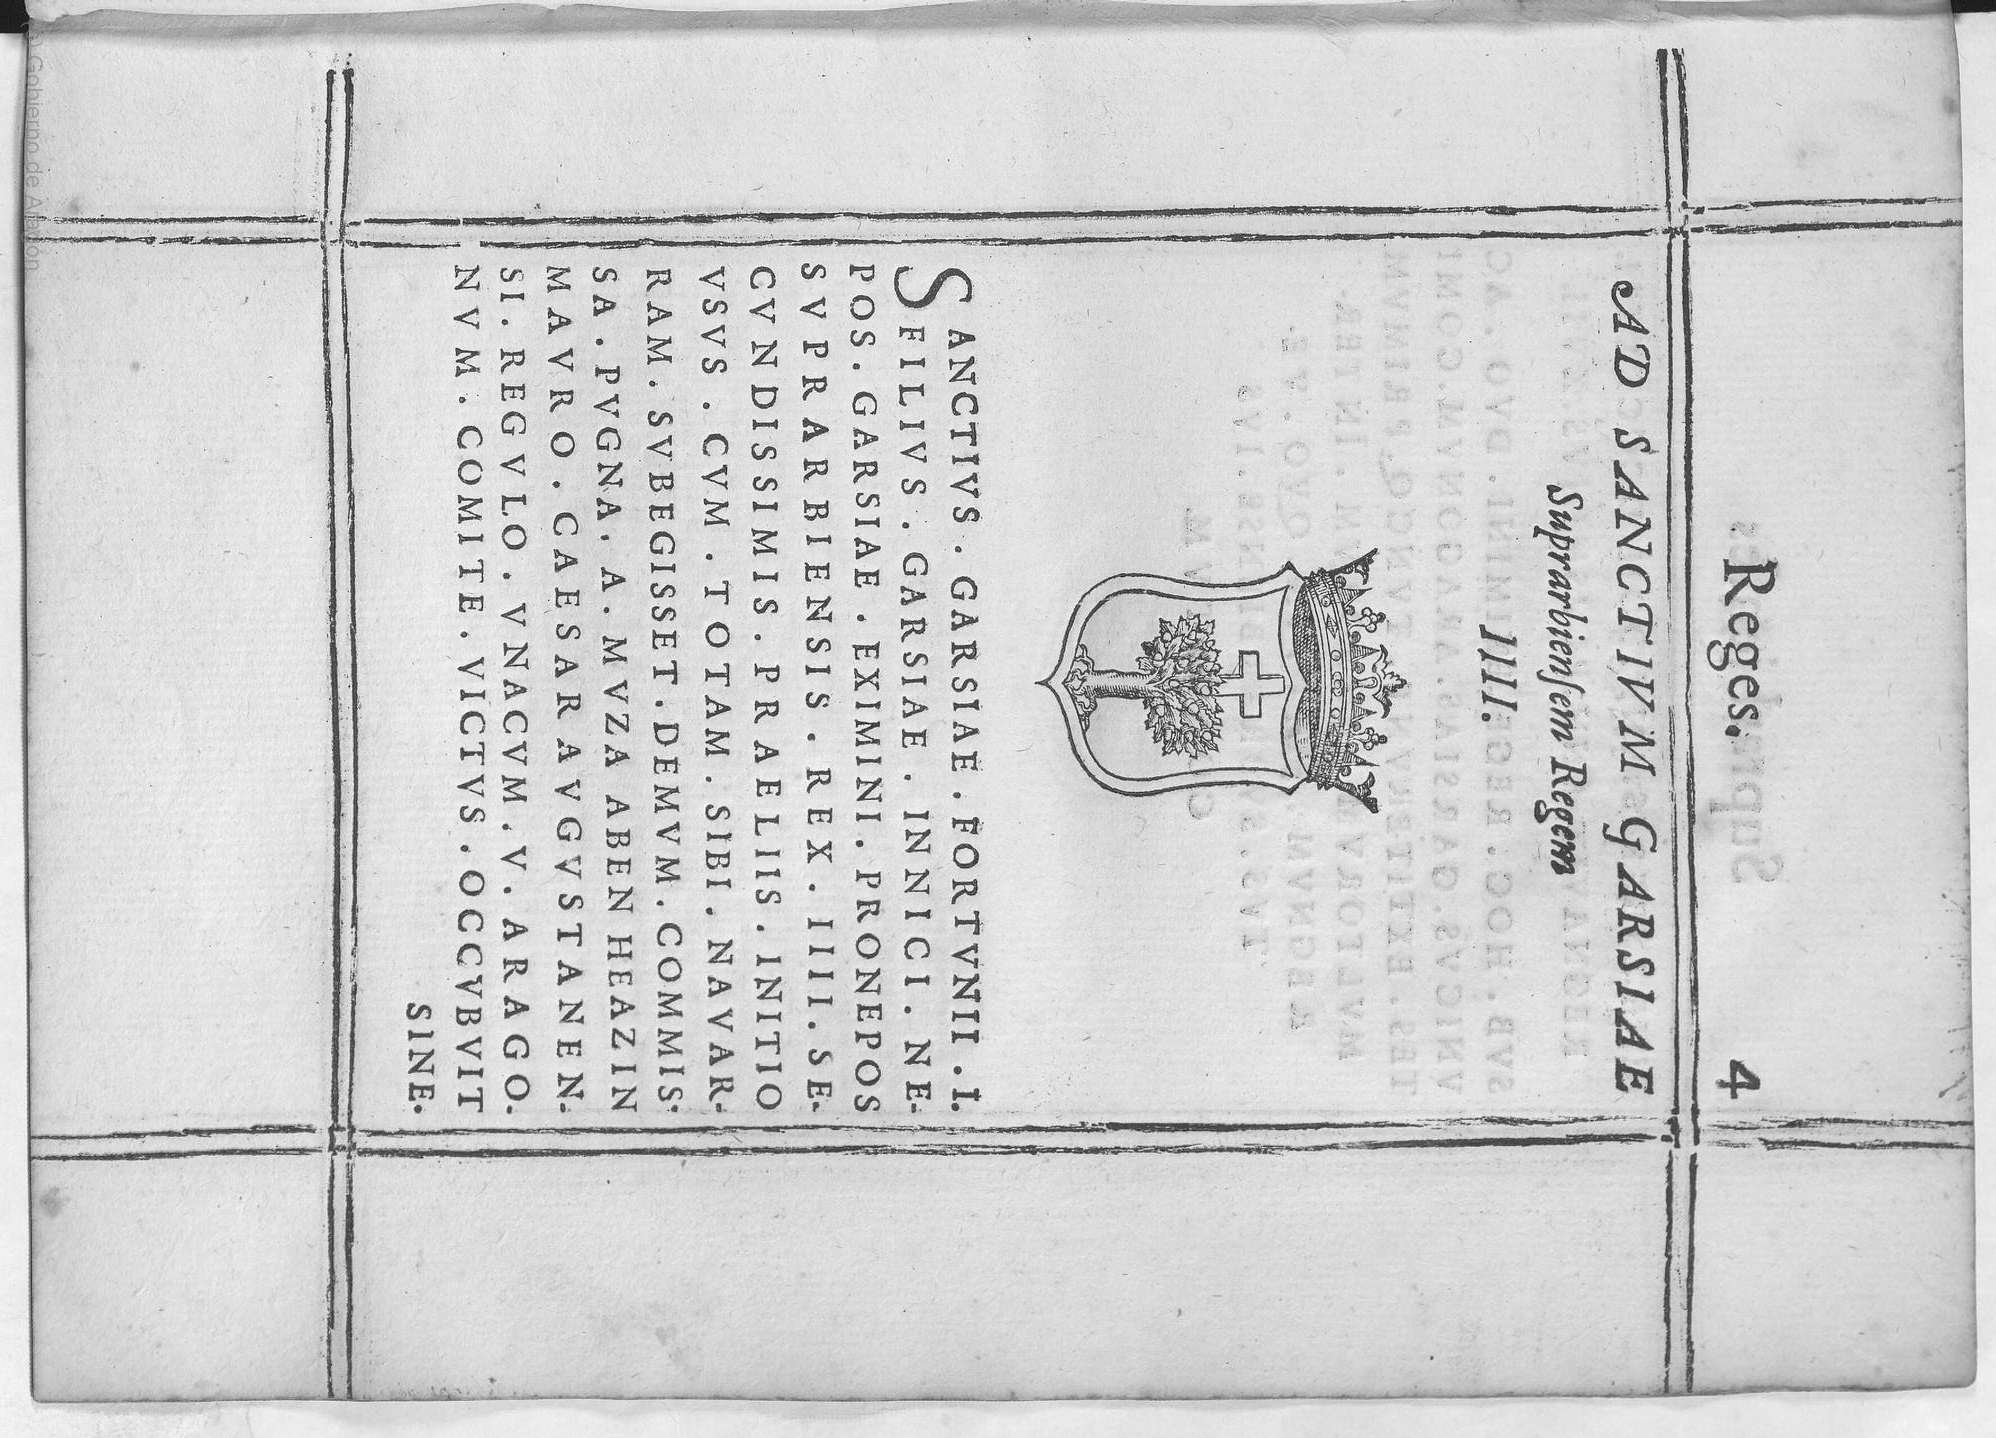 Reges.
4
AD SANCTIVM GARSIAE
Suprarbiensem Regem
IIII.
SANCTIVS . GARSIAE . FORTVNII . I.
FILIVS . GARSIAE . INNICI . NE-
POS . GARSIAE . EXIMINI . PRONEPOS
SVPRARBIENSIS . REX . IIII . SE-
CVNDISSIMIS . PRAELIIS . INITIO
VSVS . CVM . TOTAM . SIBI . NAVAR-
RAM . SVBEGISSET . DEMVM . COMMIS-
SA . PVGNA . A . MVZA ABEN HEAZIN
MAVRO . CAESARAVGVSTANEN-
SI . REGVLO . VNACVM . V . ARAGO-
NVM . COMITE . VICTVS . OCCVBVIT
SINE-
Gobierno de Aragón